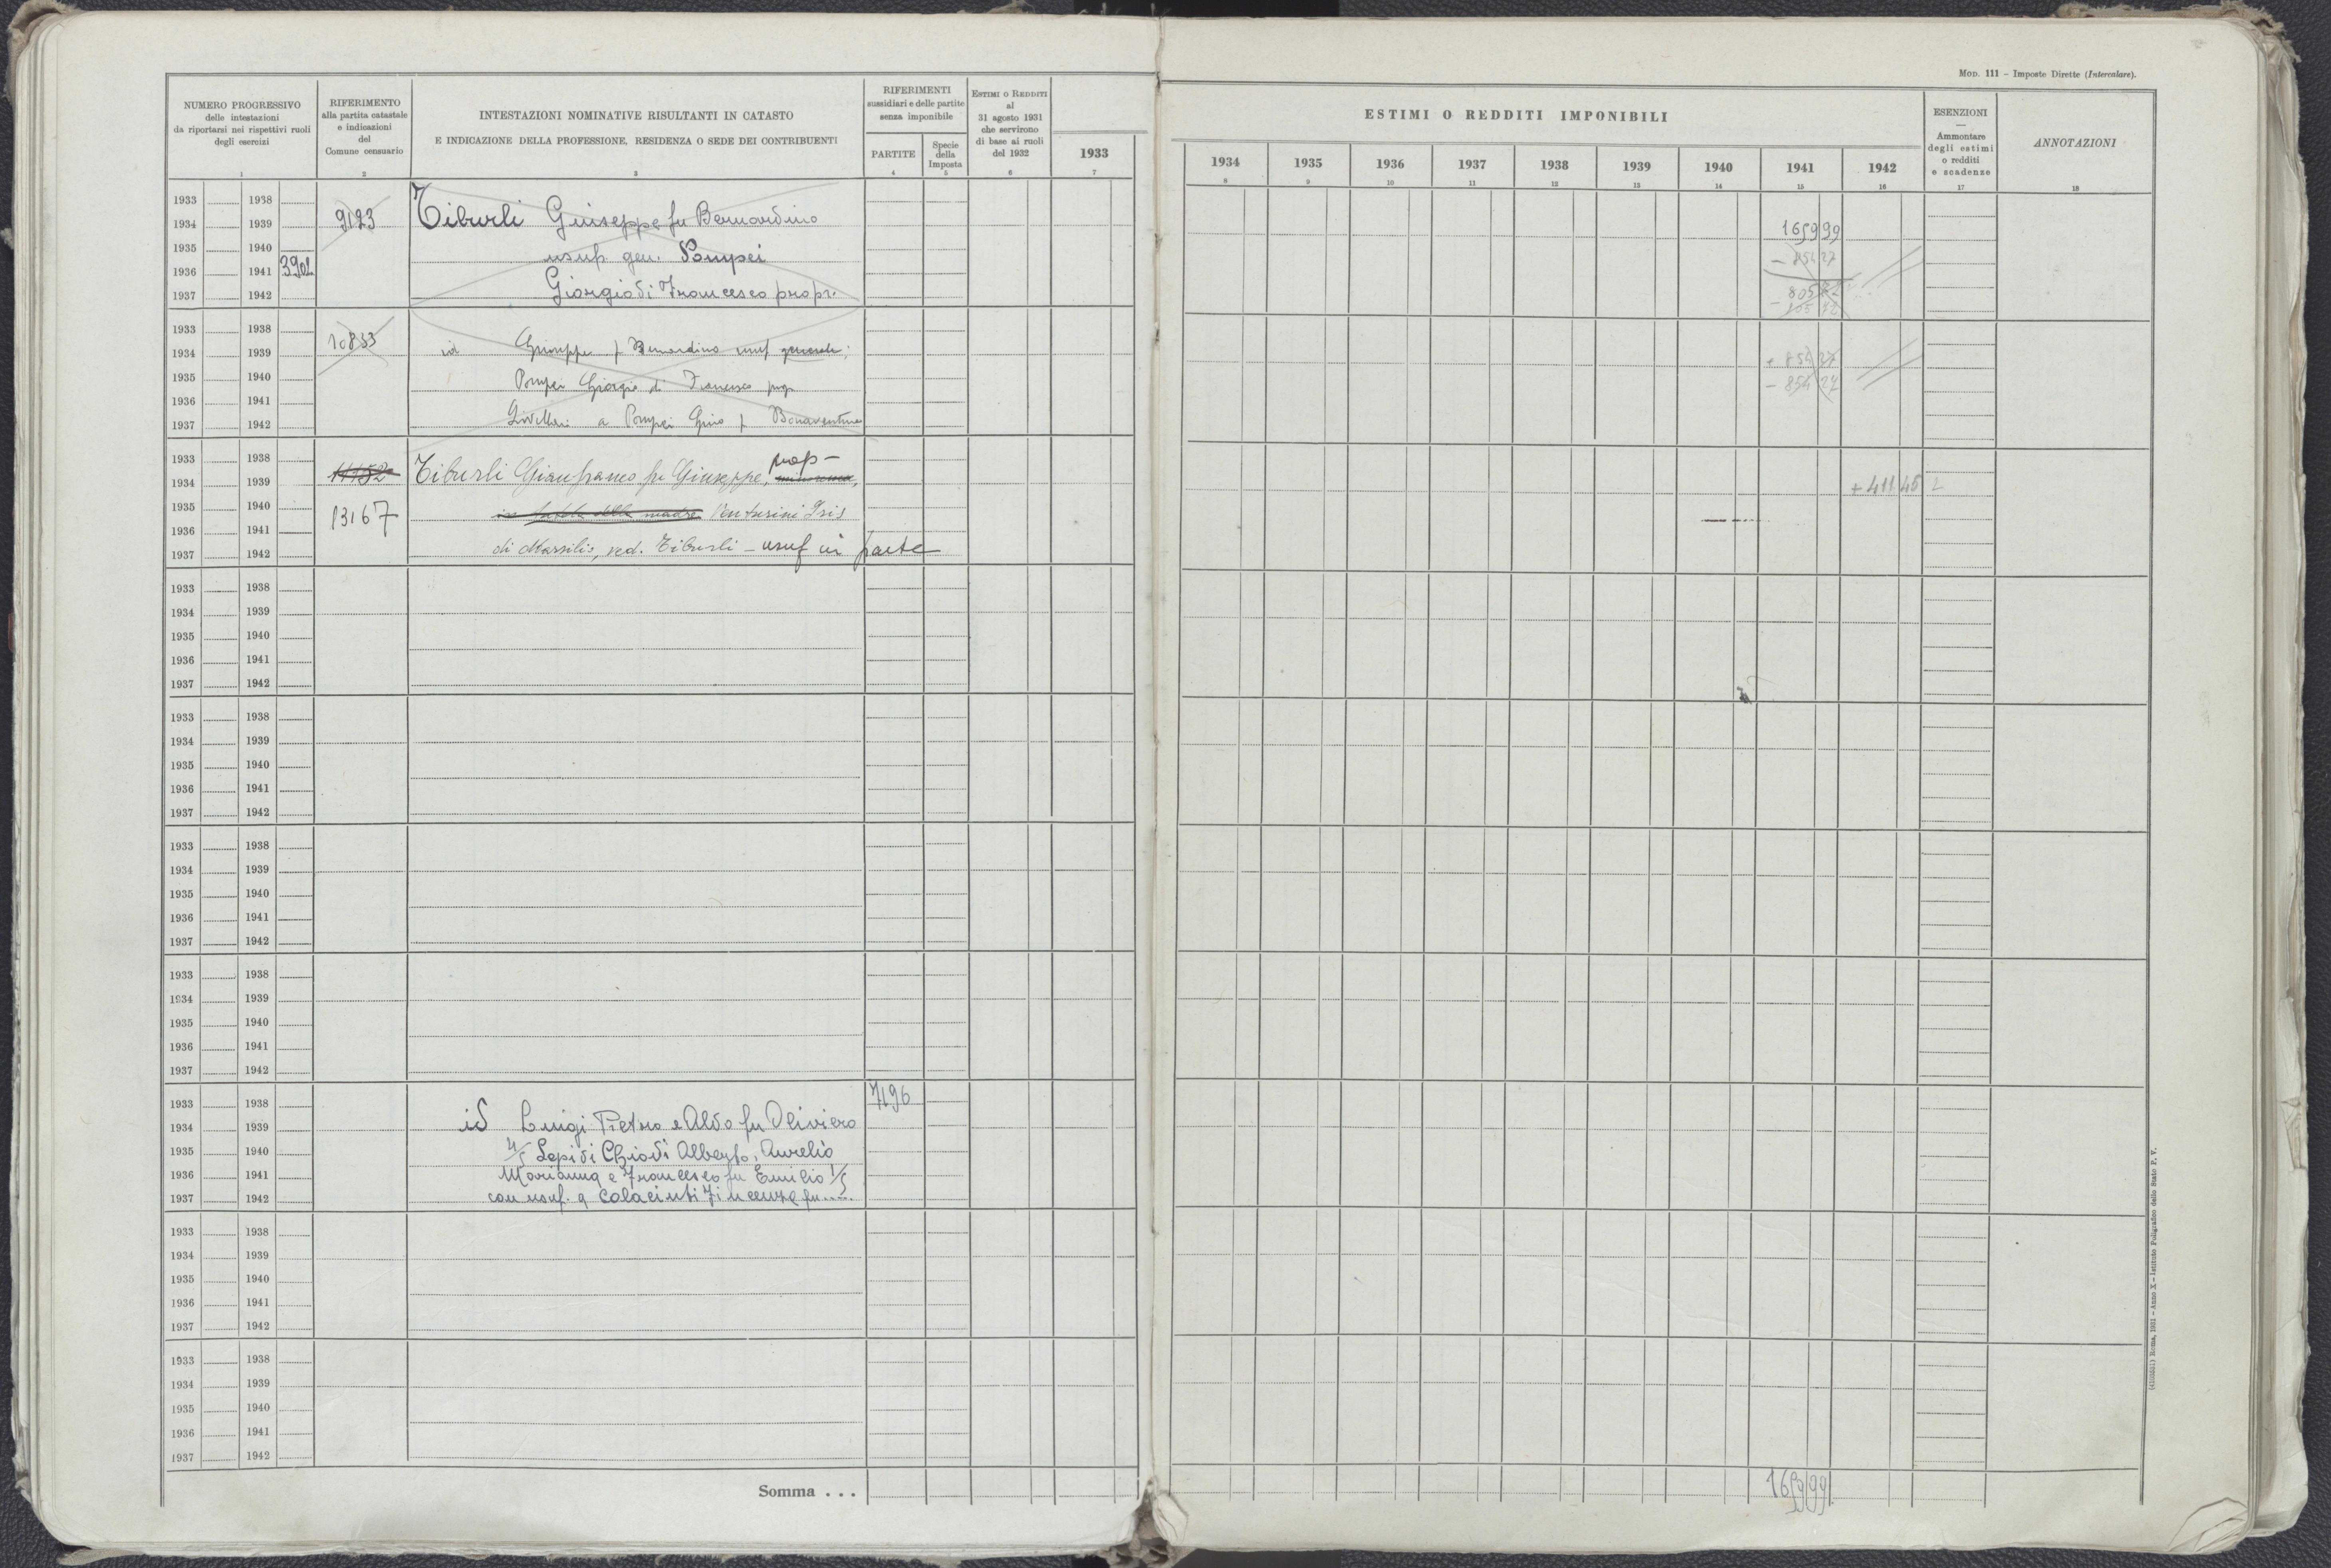 MOD. 111 – Imposte Dirette (Intercalare).
NUMERO PROGRESSIVO
delle intestazioni
da riportarsi nei rispettivi ruoli
degli esercizi
RIFERIMENTO
alla partita catastale
e indicazioni
del
Comune censuario
INTESTAZIONI NOMINATIVE RISULTANTI IN CATASTO
E INDICAZIONE DELLA PROFESSIONE, RESIDENZA O SEDE DEI CONTRIBUENTI
RIFERIMENTI
sussidiari e delle partite
senza imponibile
PARTITE
Specie
della
Imposta
ESTIMI O REDDITI
al
31 agosto 1931
che servirono
di base ai ruoli
del 1932
ESTIMI O REDDITI IMPONIBILI
1933 1934 1935 1936 1937 1938 1939 1940 1941 1942
ESENZIONI
—
Ammontare
degli estimi
o redditi
e scadenze
ANNOTAZIONI
1 2 3 4 5 6 7 8 9 10 11 12 13 14 15 16 17 18
1933 1938
1934 1939 9123 Tiburli Giuseppe fu Bernardino 1659 99
1935 1940 usuf. gen. Pompei - 854 27
1936 1941 3902
1937 1942 Giorgio di Francesco propr. 805 72
1933 1938 10853
1934 1939 id Giuseppe f Bernardino usuf generale; + 854 27
1935 1940 Pompei Giorgio di Francesco prop. - 854 27
1936 1941
1937 1942 Livellari a Pompei Gino f Bonaventura
1933 1938 prop-
1934 1939 11152 Tiburli Gianfranco fu Giuseppe, minorenne, + 411 45
1935 1940 13167 in tutela della madre Venturini Iris
1936 1941
1937 1942 di Marsilio, ved. Tiburli - usuf in parte
1933 1938
1934 1939
1935 1940
1936 1941
1937 1942
1933 1938
1934 1939
1935 1940
1936 1941
1937 1942
1933 1938
1934 1939
1935 1940
1936 1941
1937 1942
1933 1938
1934 1939
1935 1940
1936 1941
1937 1942
1933 1938 7196
1934 1939 id Luigi Pietro e Aldo fu Oliviero
1935 1940 4/5 Lepidi Chiodi Alberto, Aurelio
1936 1941 Marianna e Francesco fu Emilio 1/5
1937 1942 con usuf. a Colacinti
1933 1938
1934 1939
1935 1940
1936 1941
1937 1942
1933 1938
1934 1939
1935 1940
1936 1941
1937 1942
Somma . . . 1659 99
(4105531) Roma, 1931 – Anno X – Istituto Poligrafico dello Stato P. V.